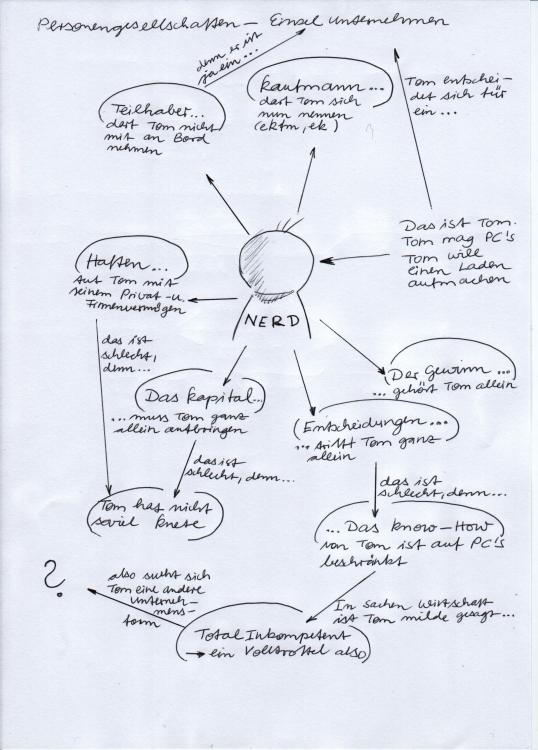 Personengesellschaften – Einzelunternehmen
denn er ist
ja ein...
Teilhaber...
darf Tom nicht
mit an Bord
nehmen
Kaufmann...
darf Tom sich
nun nennen
(eKfm, eK)
Tom entschei-
det sich für
ein...
Das ist Tom.
Tom mag PC's
Tom will
einen Laden
aufmachen
Haften...
tut Tom mit
seinem Privat- u.
Firmenvermögen
NERD
das ist
schlecht,
denn...
Der Gewinn...
... gehört Tom allein
Das Kapital...
... muss Tom ganz
allein aufbringen
Entscheidungen...
... trifft Tom ganz
allein
das ist
schlecht, denn...
das ist
schlecht, denn...
Tom hat nicht
soviel Knete
... Das Know-How
von Tom ist auf PC's
beschränkt
?
also sucht sich
Tom eine andere
Unterneh-
mens-
form
In Sachen Wirtschaft
ist Tom milde gesagt...
Total Inkompetent
→ ein Volltrottel also